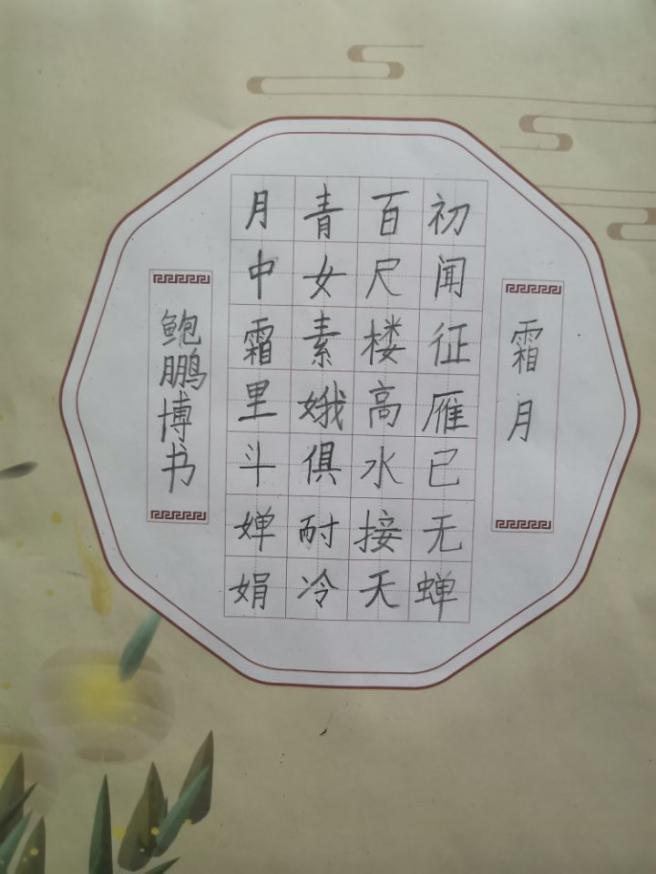 霜月
初闻征雁已无蝉
百尺楼高水接天
青女素娥俱耐冷
月中霜里斗婵娟
鲍鹏博书